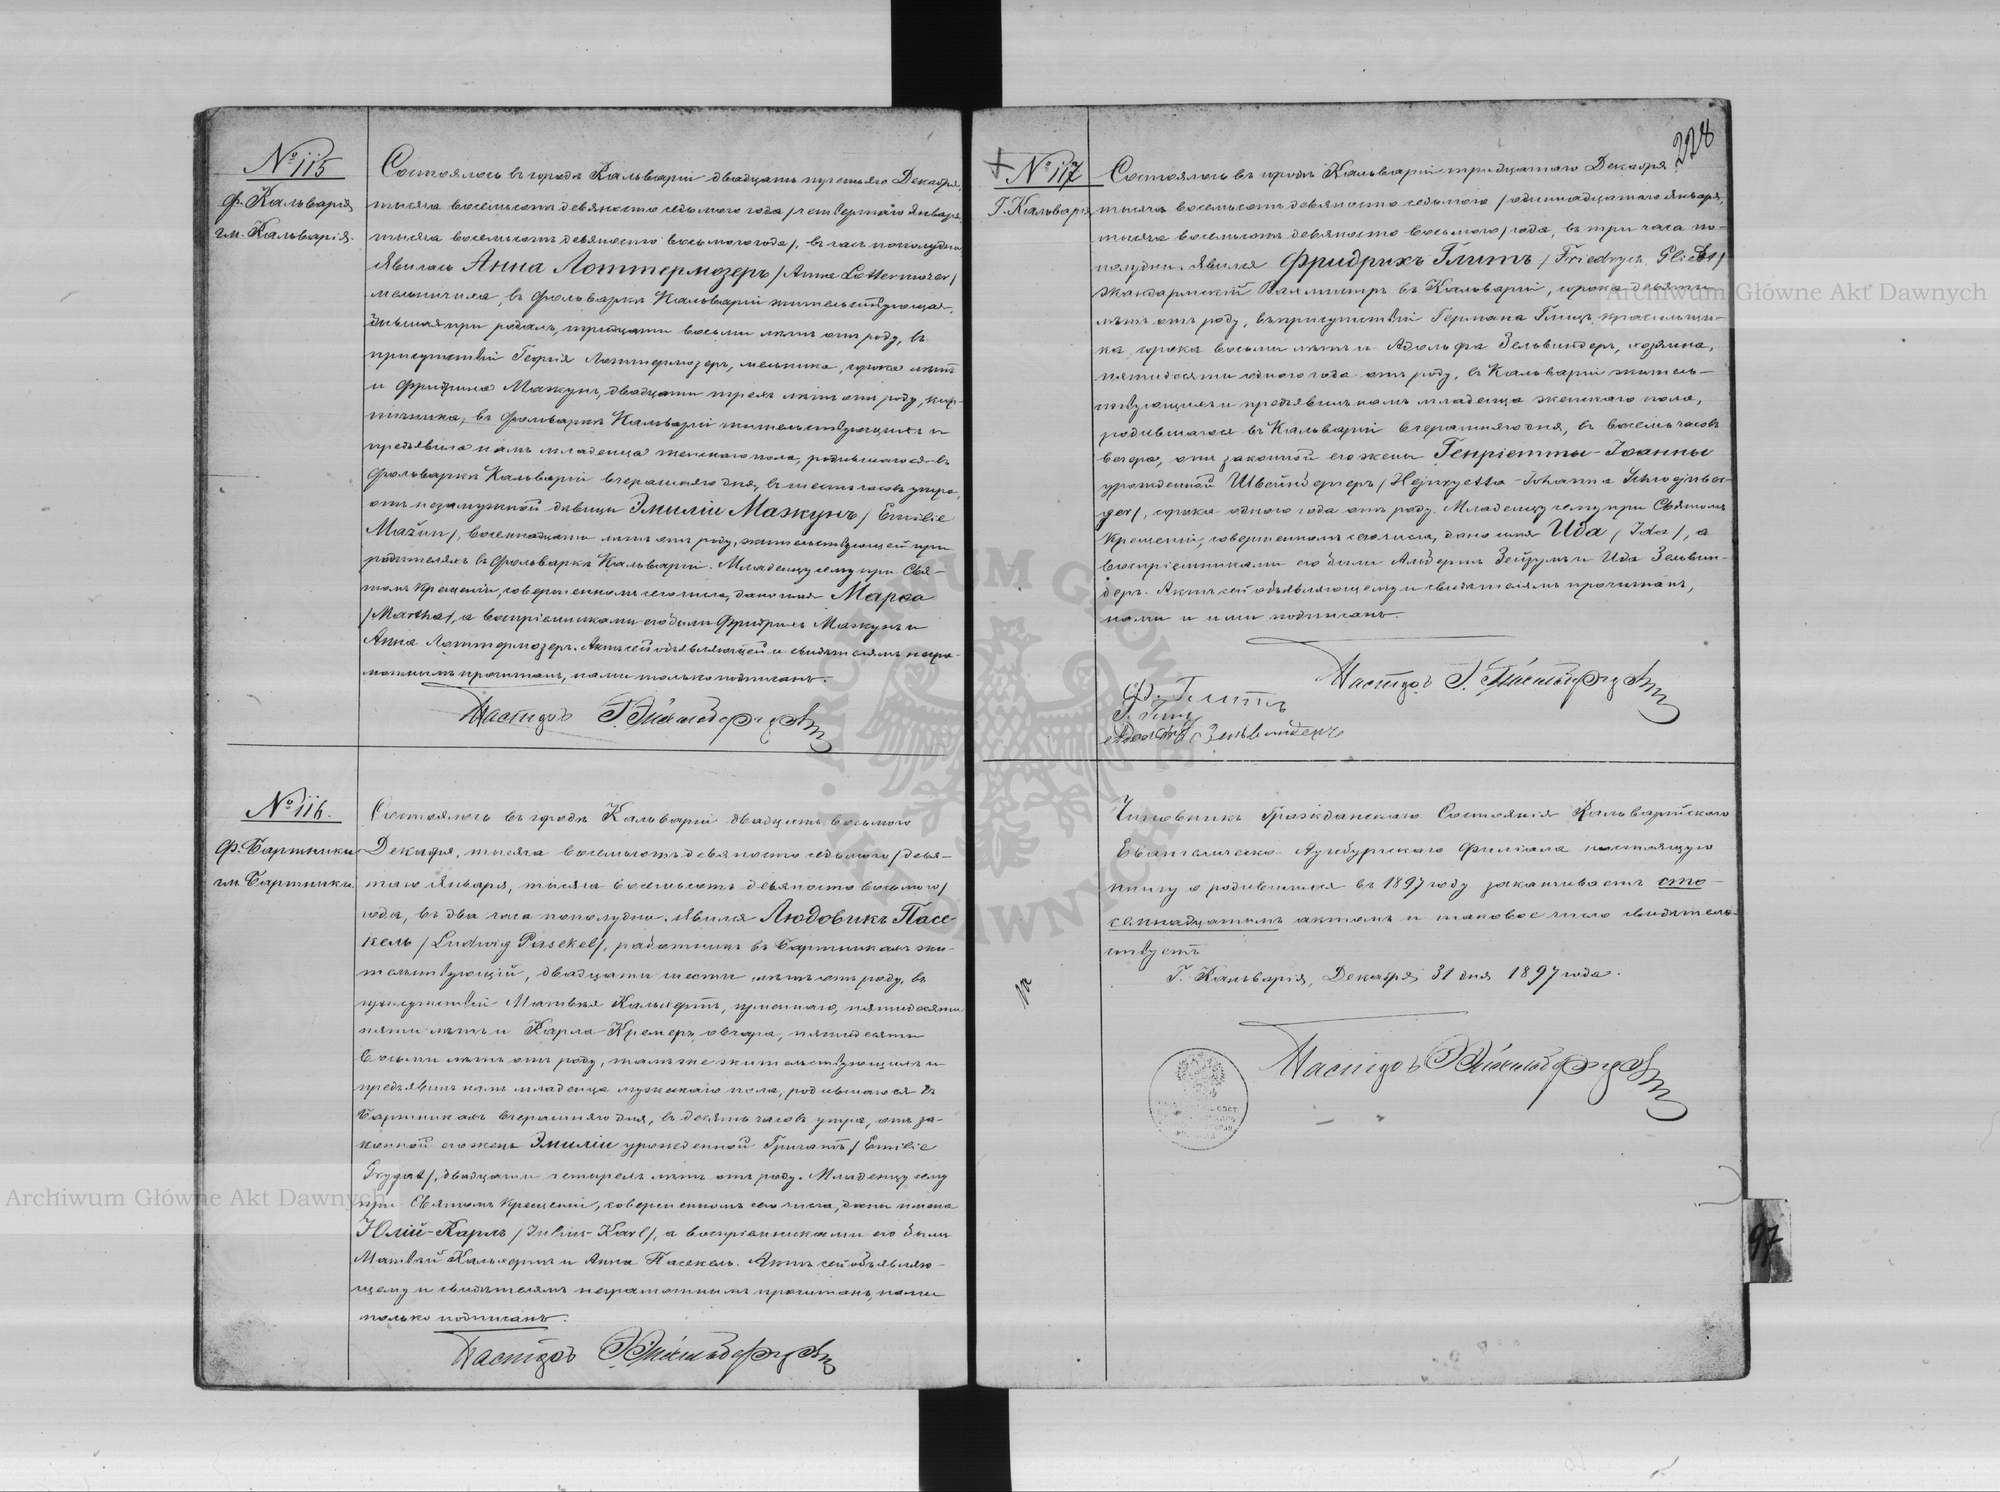 № 115
ф. Кальварія
гм. Кальварія.
Состоялось въ городѣ Кальваріи двадцать третьяго Декабря,
тысяча восемьсотъ девяносто седьмого года /четвертаго Января
тысяча восемьсотъ девяносто восьмого года/, въ часъ пополудни.
Явилась Анна Лоттермозеръ /Anna Lottermoser/
мельничиха, въ фольваркѣ Кальваріи жительствующая,
бывшая при родахъ, тридцати восьми лѣтъ отъ роду, въ
присутствіи Георгія Лоттермозеръ, мельника, сорока лѣтъ
и Фридриха Мажунъ, двадцати трехъ лѣтъ отъ роду, кир-
пичника, въ фольваркѣ Кальваріи жительствующихъ и
предъявила намъ младенца женскаго пола, родившагося въ
фольваркѣ Кальваріи вчерашняго дня, въ шесть часовъ утра,
отъ незамужной дѣвицы Эмиліи Мажунъ /Emilie
Mažun/, восемнадцати лѣтъ отъ роду, жительствующей при
родителяхъ въ фольваркѣ Кальваріи. Младенцу сему при Свя-
томъ Крещеніи, совершенномъ сего числа, дано имя Марѳа
/Martha/, а воспріемниками его были Фридрихъ Мажунъ и
Анна Лоттермозеръ. Актъ сей объявляющей и свидѣтелямъ негра-
мотнымъ прочитанъ, нами только подписанъ.
Пасторъ
№ 116.
ф. Бартники
гм. Бартники
Состоялось въ городѣ Кальваріи двадцать восьмого
Декабря, тысяча восемьсотъ девяносто седьмого /девя-
таго Января, тысяча восемьсотъ девяносто восьмого/
года, въ два часа пополудни. Явился Людовикъ Пасе-
кель /Ludwig Pasekel/, работникъ въ Бартникахъ жи-
тельствующій, двадцати шести лѣтъ отъ роду, въ
присутствіи Матвѣя пятидесяти
пяти лѣтъ и Карла Кремеръ, овчара, пятидесяти
восьми лѣтъ отъ роду, тамъ же жительствующихъ и
предъявилъ намъ младенца мужескаго пола, родившагося въ
Бартникахъ вчерашняго дня, въ девять часовъ утра, отъ за-
конной его жены Эмиліи урожденной Григатъ /Emilie
Grygat/, двадцати четырехъ лѣтъ отъ роду. Младенцу сему
при Святомъ Крещеніи, совершенномъ сего числа, даны имена
Юлій-Карлъ /Julius-Karl/, а воспріемниками его были
Матвѣй и Анна Пасекель. Актъ сей объявляю-
щему и свидѣтелямъ неграмотнымъ прочитанъ, нами
только подписанъ.
Пасторъ
228
№ 117
Г. Кальварія
Состоялось въ городѣ Кальваріи тридцатаго Декабря
тысяча восемьсотъ девяносто седьмого /одиннадцатаго Января,
тысяча восемьсотъ девяносто восьмого/ года, въ три часа по-
полудни. Явился Фридрихъ Глитъ /Friedrych Gliet/
Жандармскій Вахмистръ въ Кальваріи, сорока девяти
лѣтъ отъ роду, въ присутствіи Германа красильщи-
ка, сорока восьми лѣтъ и Адольфа Зельвиндеръ, хозяина,
пятидесяти одного года отъ роду, въ Кальваріи житель-
ствующихъ и предъявилъ намъ младенца женскаго пола,
родившагося въ Кальваріи вчерашняго дня, въ восемь часовъ
вечера, отъ законной его жены Генріетты-Іоанны
урожденной /Hejnryetta-Johanna
сорока одного года отъ роду. Младенцу сему при Святомъ
Крещеніи, совершенномъ сего числа, дано имя Ида /Ida/, а
воспріемниками его были и Ида Зельвин-
деръ. Актъ сей объявляющему и свидѣтелямъ прочитанъ,
нами и ими подписанъ.
Пасторъ
Ф. Глитъ
Адольфъ Зельвиндеръ
Чиновникъ Гражданскаго Состоянія Кальварійскаго
Евангелическо-Аугсбургскаго Филіала настоящую
книгу о родившихся въ 1897 году заканчиваетъ сто-
семнадцатымъ актомъ и таковое число свидѣтель-
ствуетъ
Г. Кальварія, Декабря 31 дня 1897 года.
Пасторъ
97
Archiwum Główne Akt Dawnych
Archiwum Główne Akt Dawnych